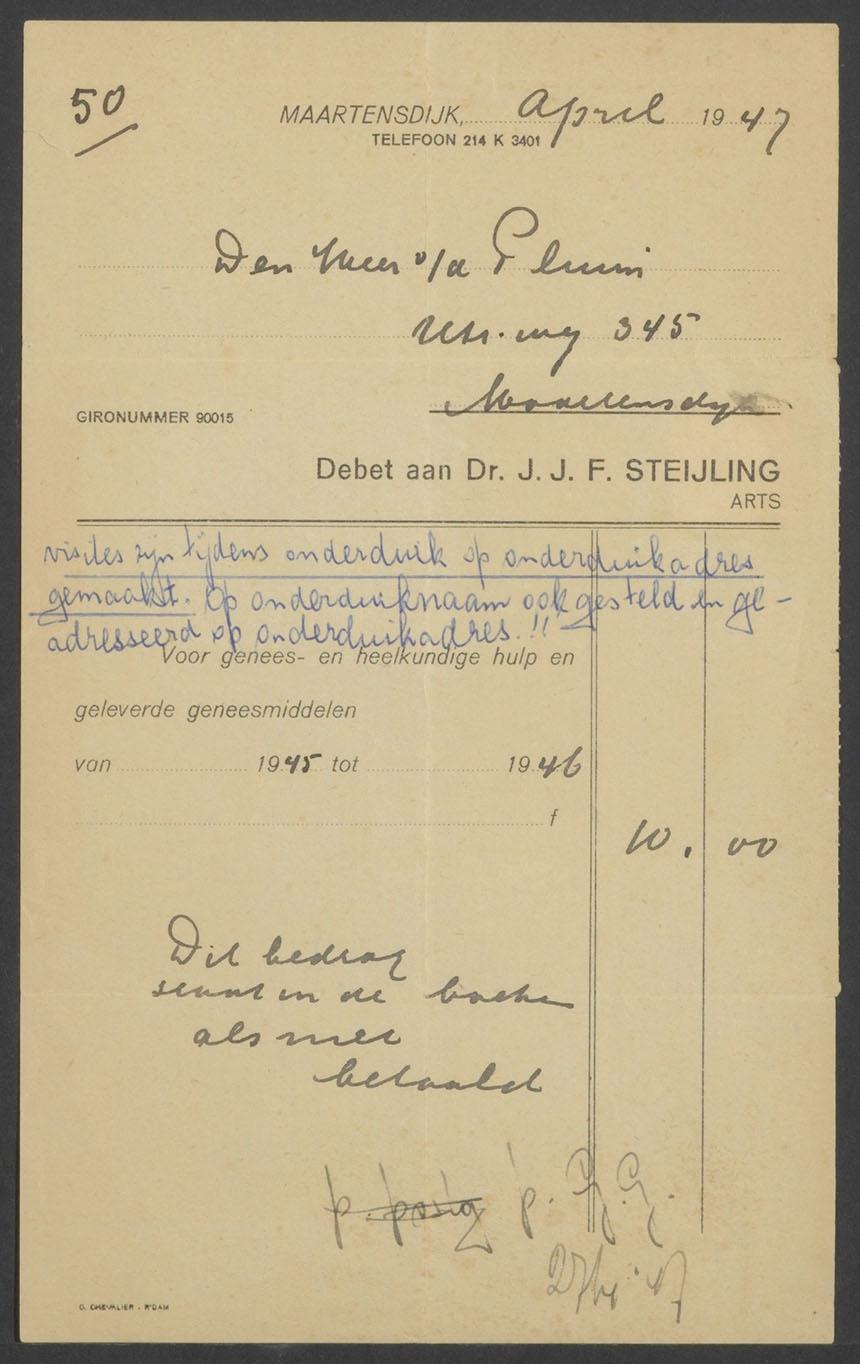 50
MAARTENSDIJK, April 1947
TELEFOON 214 K 3401
Den Heer v/d Pluim
Utr. weg 345
Maartensdijk
GIRONUMMER 90015
Debet aan Dr. J. J. F. STEIJLING
ARTS
visites zijn tijdens onderduik op onderduikadres
gemaakt. Op onderduiknaam ook gesteld en ge-
adresseerd op onderduikadres.!!
Voor genees- en heelkundige hulp en
geleverde geneesmiddelen
van 1945 tot 1946
f 10.00
Dit bedrag
staat in de boeken
als niet
betaald
p. p. G.
27/4 '47
G. CHEVALIER - R'DAM